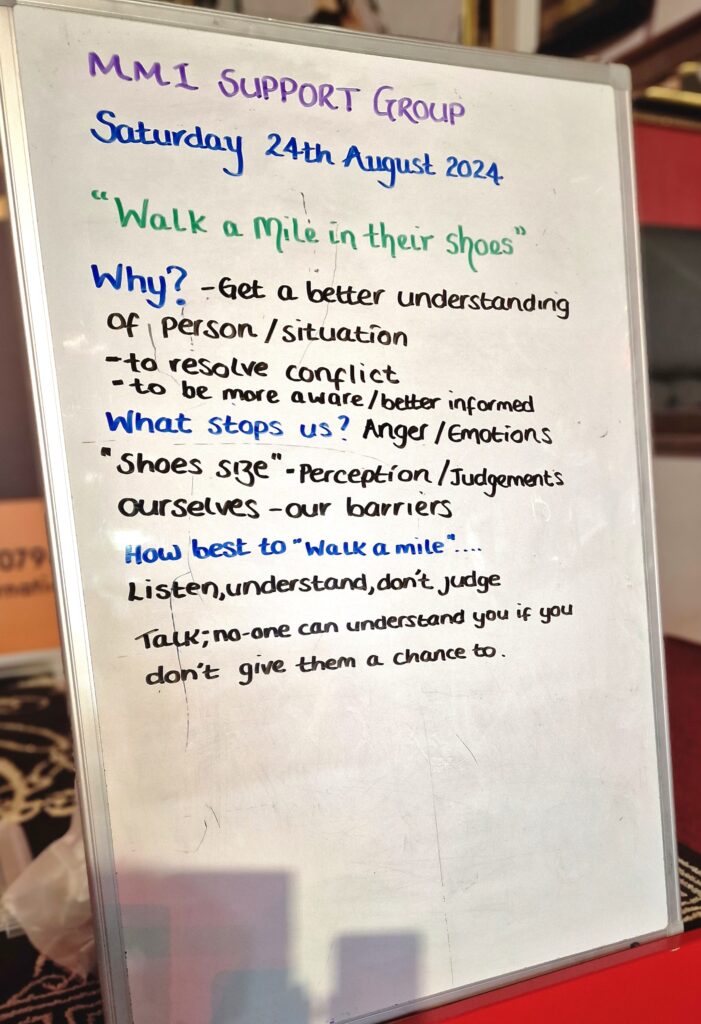 MMI SUPPORT GROUP
Saturday 24th August 2024
"Walk a Mile in their shoes"
Why? - Get a better understanding
of person/situation
- to resolve conflict
- to be more aware/better informed
What stops us? Anger/Emotions
"Shoes size" - Perception/Judgements
ourselves - our barriers
How best to "Walk a mile"....
Listen, understand, don't judge
Talk; no-one can understand you if you
don't give them a chance to.
079